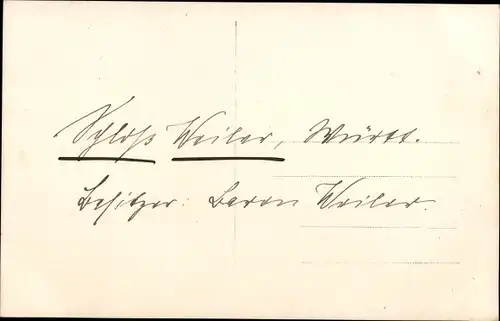 Schloß Weiler, Württ.
Besitzer: Baron Weiler.